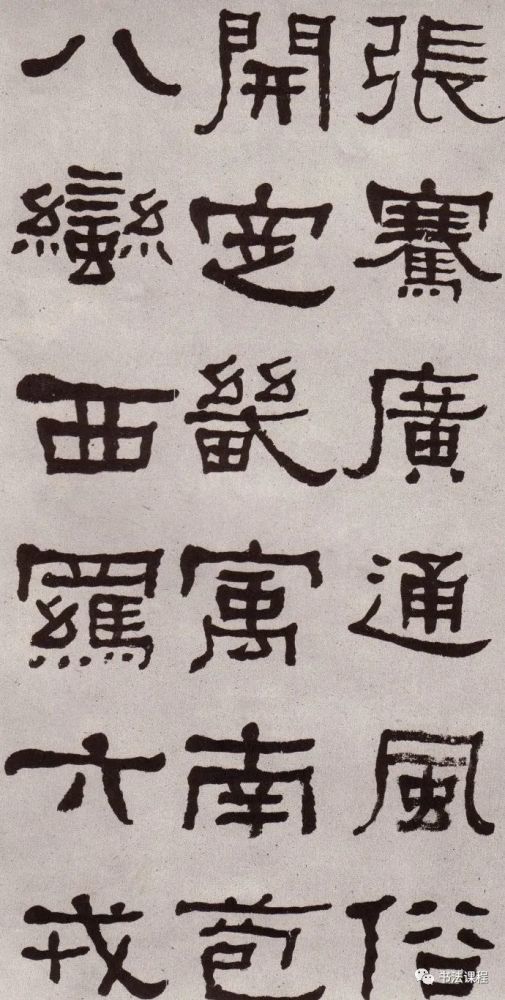 張騫廣通風俗
開定畿寓南苞
八蠻西羈六戎
书法课程